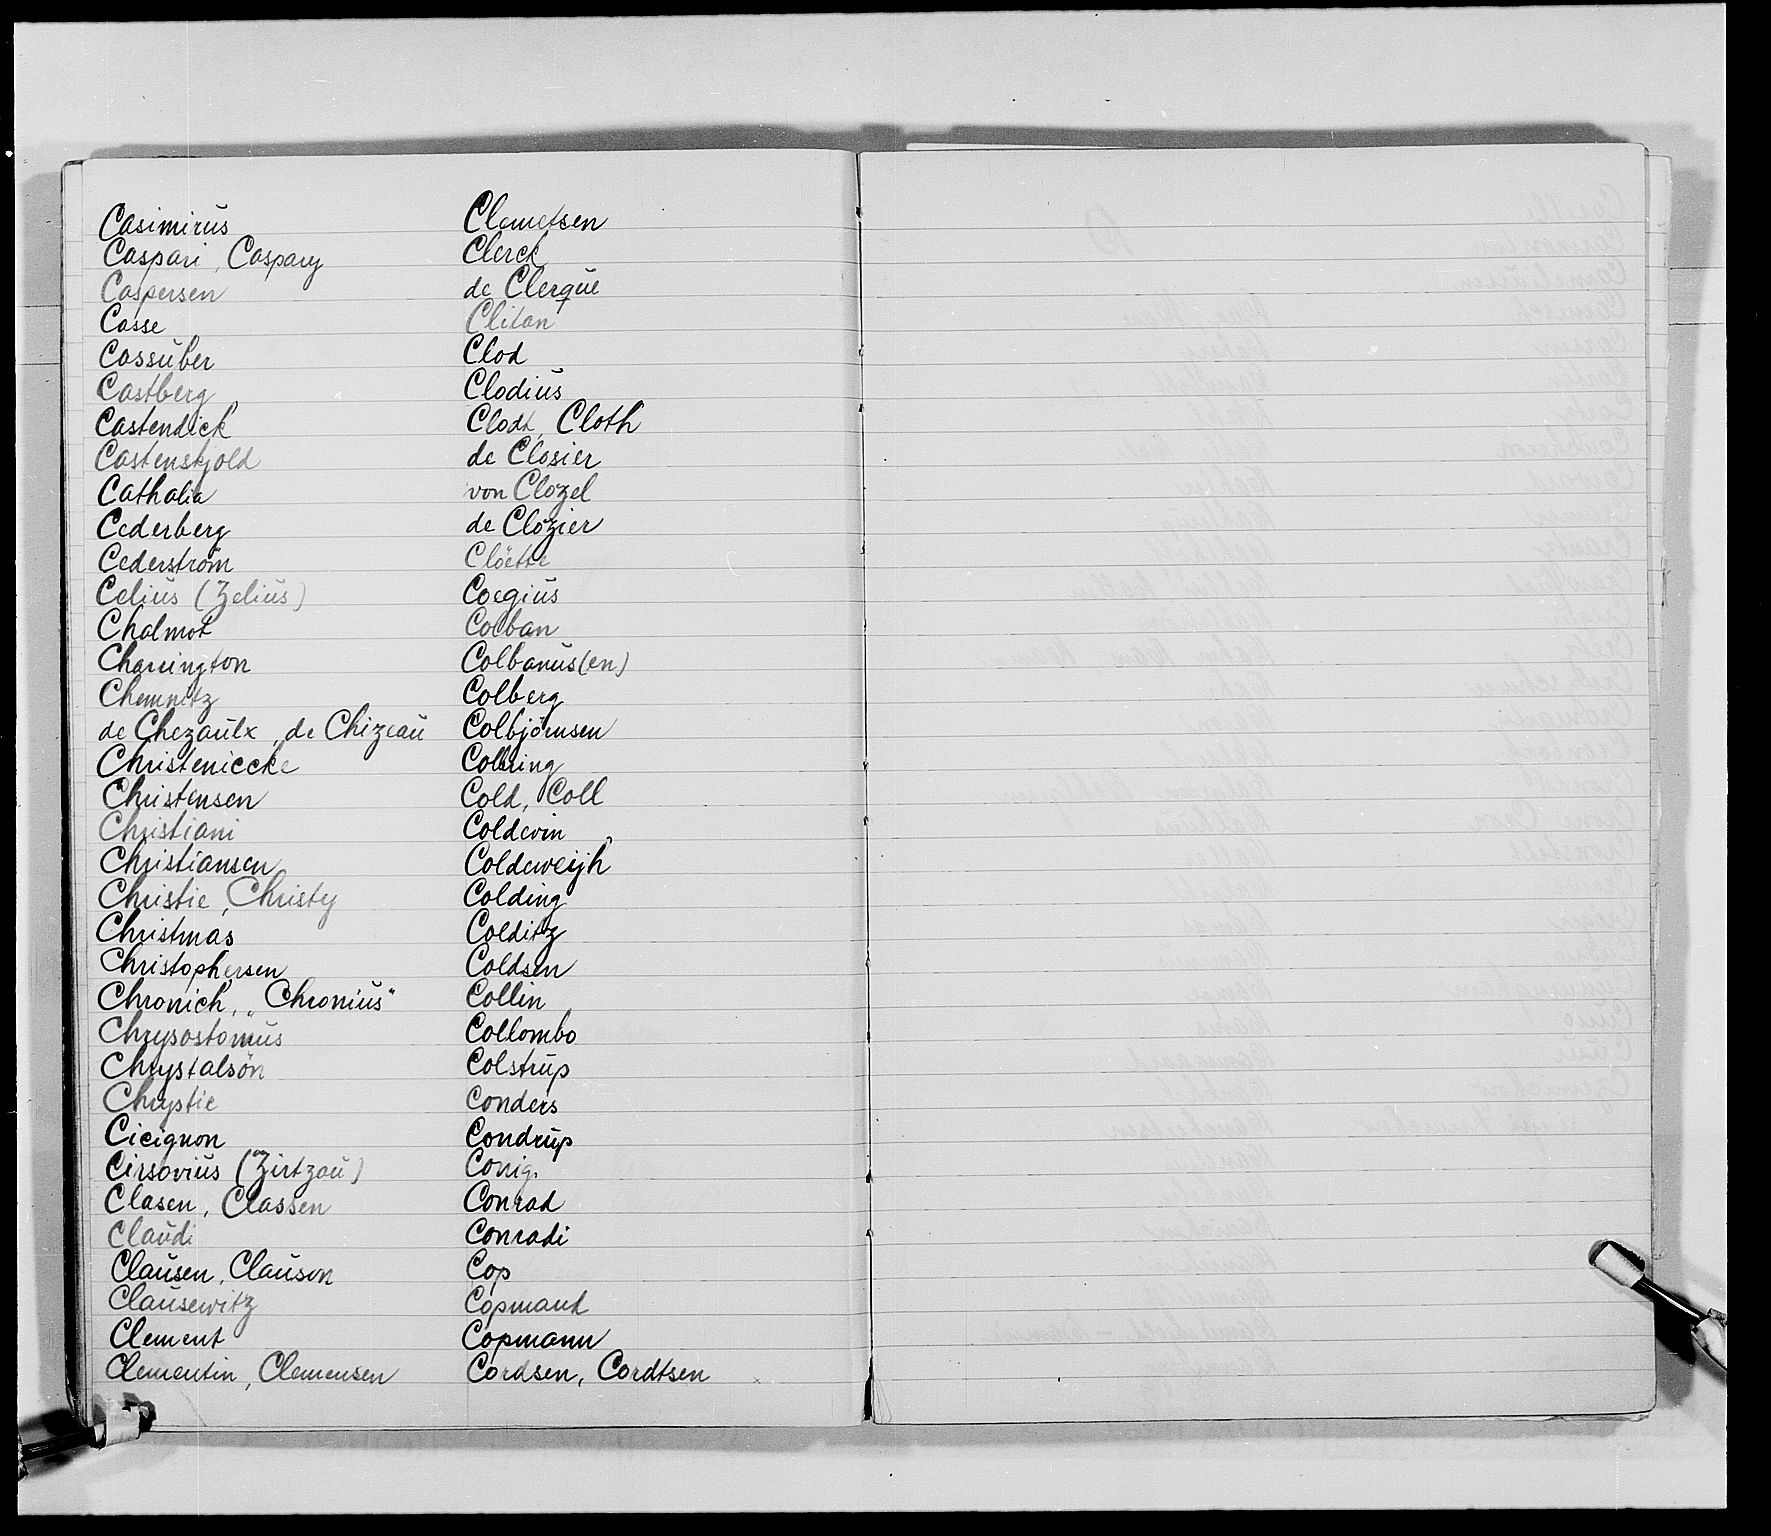 Casimirus
Caspari, Caspary
Caspersen
Casse
Cassuber
Castberg
Castendick
Castenskjold
Cathalia
Cederberg
Cederström
Celius (Zelius)
Chalmot
Charrington
Chemnitz
de Chezaulx, de Chizeau
Christeniecke
Christensen
Christiani
Christiansen
Christie, Christy
Christmas
Christophersen
Chronich, „Chronius"
Chrysostomus
Chrystalsön
Chrystie
Cicignon
Cirsovius (Zirtzou)
Clasen, Classen
Claudi
Clausen, Clauson
Clausewitz
Clement
Clementin, Clemensen
Clemetsen
Clerck
de Clerque
Clitan
Clod
Clodius
Clodt, Cloth
de Closier
von Clozel
de Clozier
Clöette
Coegius
Colban
Colbanus(en)
Colberg
Colbjörnsen
Cold, Coll
Coldevin
Coldeweijh
Colding
Colditz
Coldsen
Collin
Collombo
Colstrup
Conders
Condrup
Conig.
Conrad
Conradi
Cop
Copmand
Copmann
Cordsen, Cordtsen